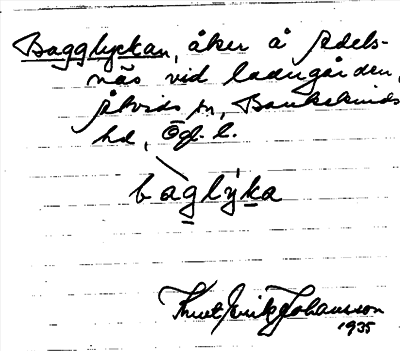 Bagglyckan, åker å Adels-
näs vid ladugården,
Åtvids sn, Bankekinds
hd, Ögl. l.
baglýka
Knut Erik Johansson
1935